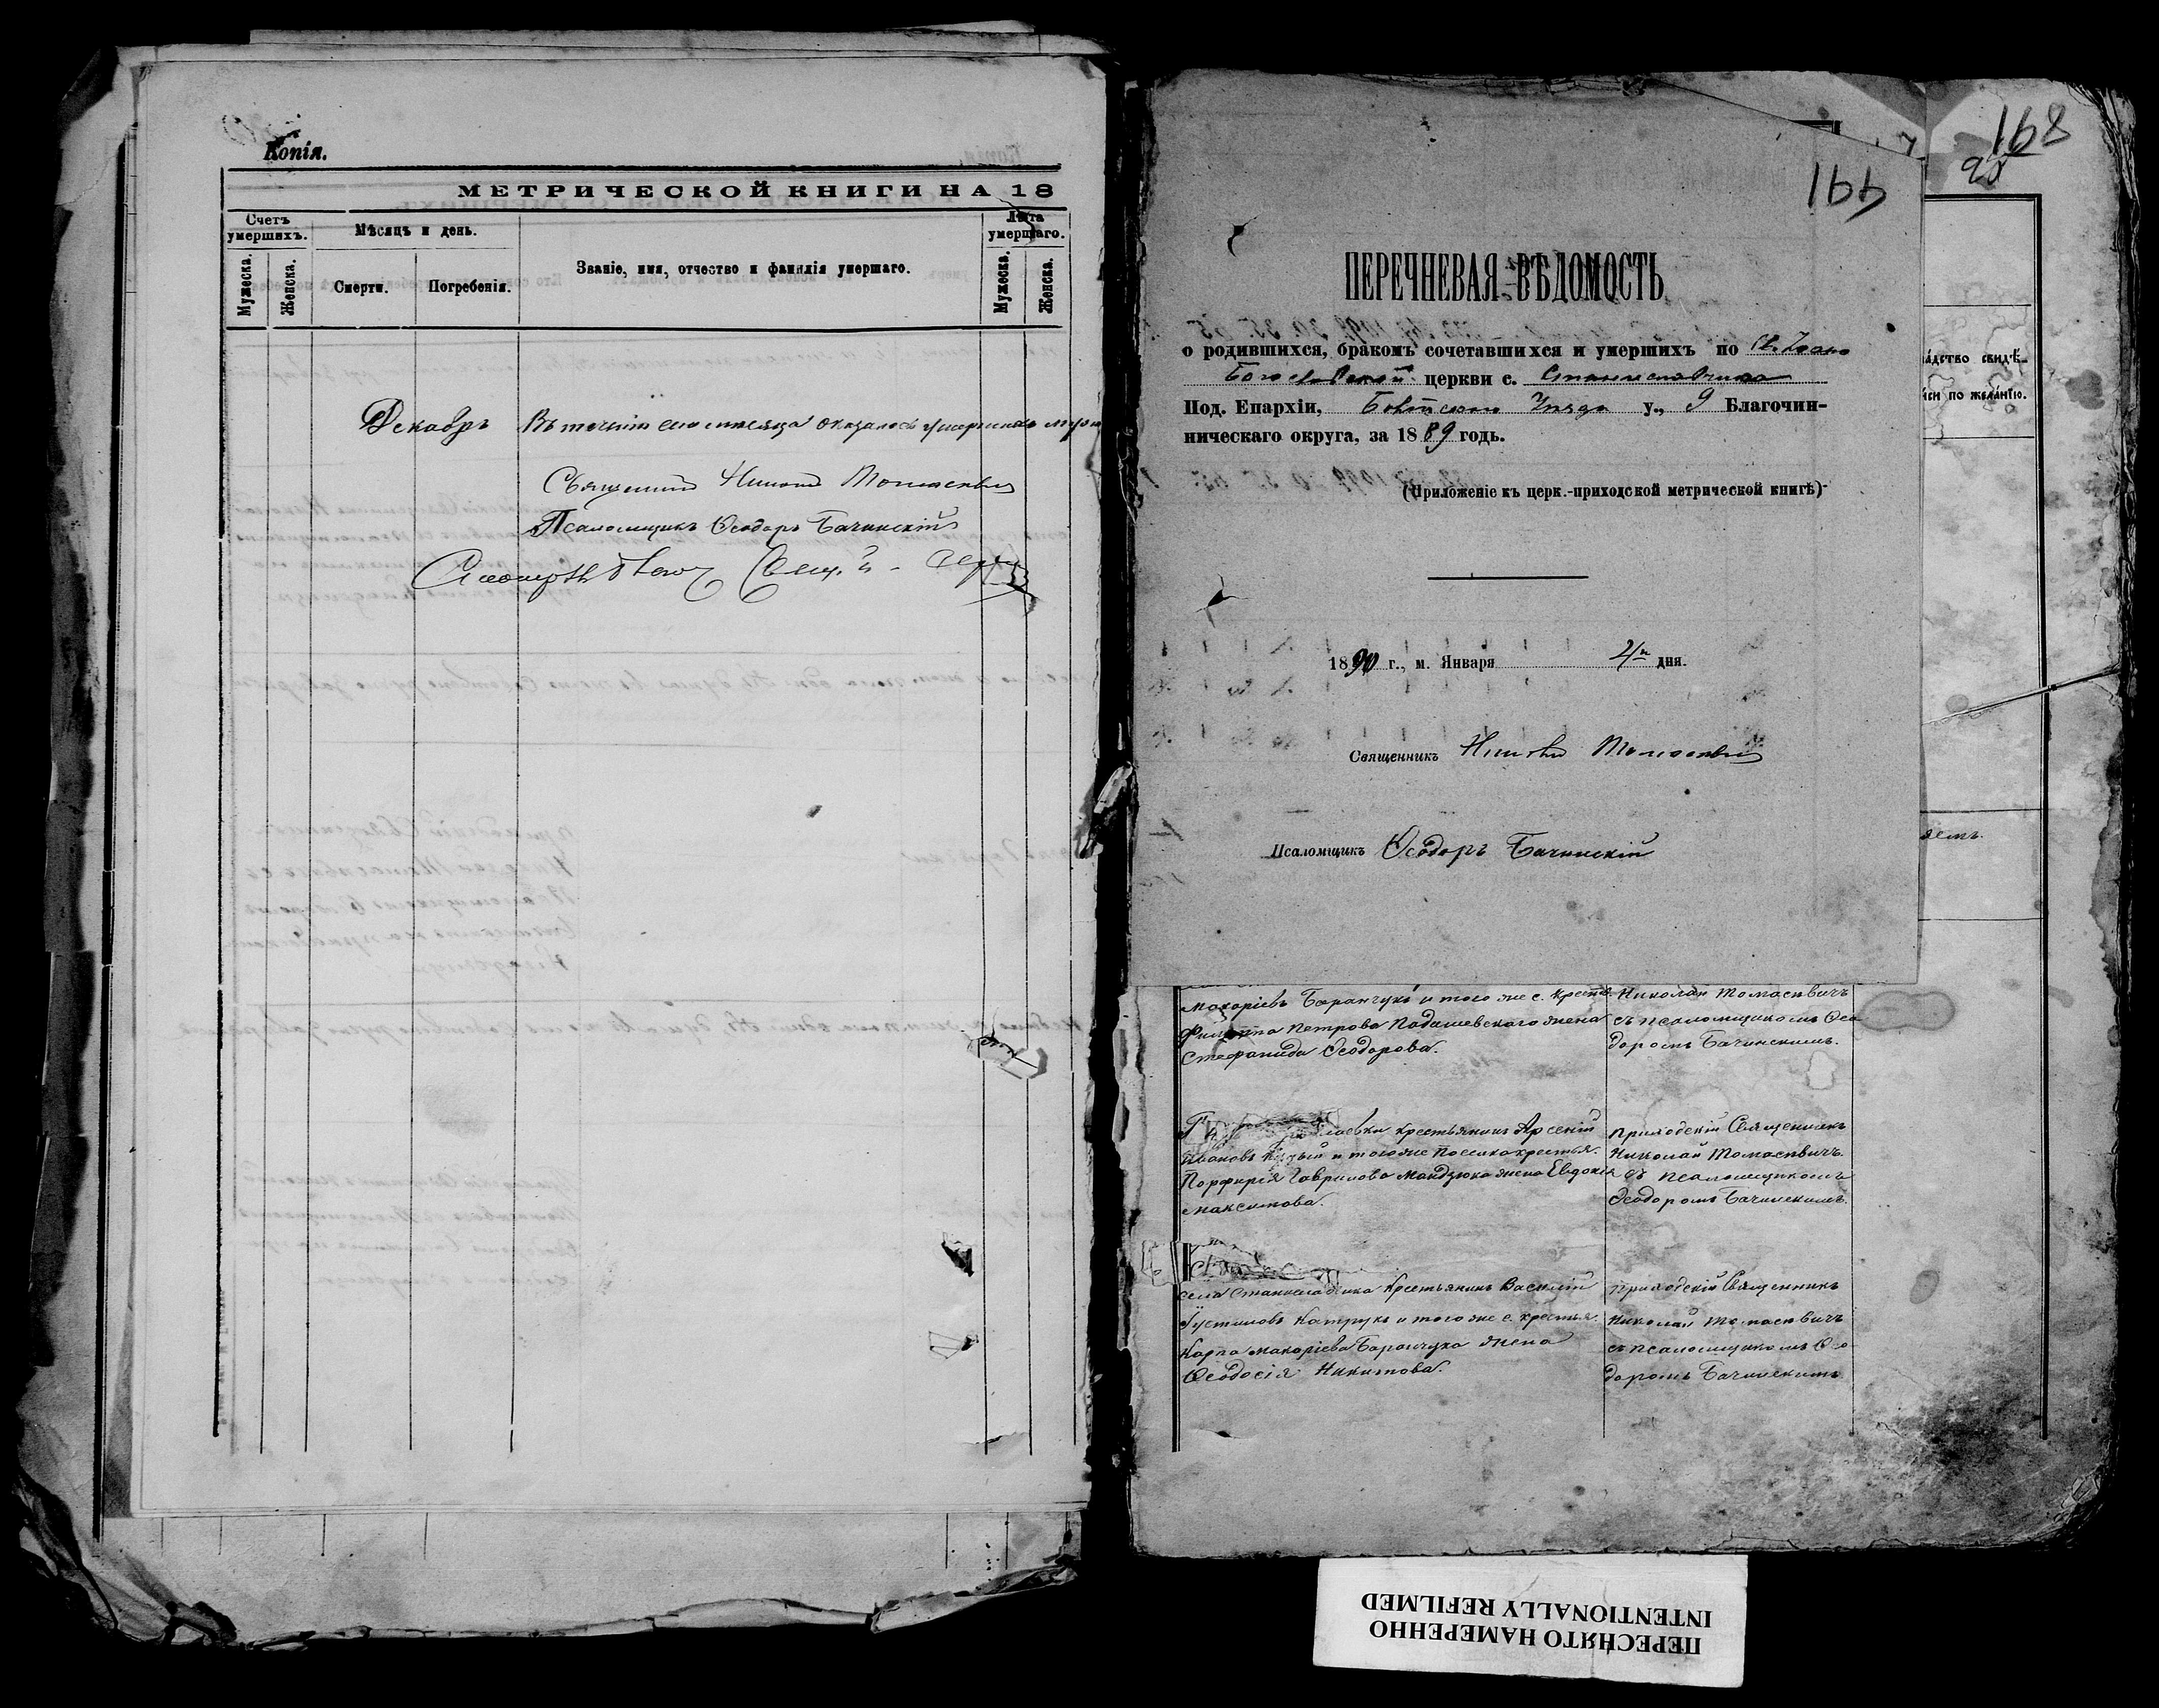 Копія.
МЕТРИЧЕСКОЙ КНИГИ НА 18
Счетъ умершихъ.
Мѣсяцъ и день.
Званіе, имя, отчество и фамилія умершаго.
Лѣта умершаго.
Мужеска.
Женска.
Смерти.
Погребенія.
Мужеска.
Женска.
Декабрь
Въ теченіи сего мѣсяца оказалось умершихъ
Священникъ Николай Томасевичъ
Псаломщикъ Ѳеодоръ Бачинскій
168
166
ПЕРЕЧНЕВАЯ ВѢДОМОСТЬ
о родившихся, бракомъ сочетавшихся и умершихъ по Св. Іоано
Богословской церкви с. Станиславчика
Под. Епархіи, у., 9 Благочин-
ническаго округа, за 1889 годъ.
(Приложеніе къ церк.-приходской метрической книгѣ)
1890 г., м. Января 4го дня.
Священникъ Николай Томасевичъ
Псаломщикъ Ѳеодоръ Бачинскій
свидѣ-
по желанію.
Макаріевъ Баранчукъ и того же с. крест.
Филиппа Петрова Подашевского жена
Стефанида Ѳеодорова.
Николай Томасевичъ
съ псаломщикомъ Ѳео
доромъ Бачинскимъ.
крестьянинъ Арсеній
Ивановъ и того же поселка крестья.
Порфирія Гаврилова Мандзюка жена Евдокія
Максимова.
Приходскій Священникъ
Николай Томасевичъ
съ псаломщикомъ
Ѳеодоромъ Бачинскимъ.
села Станиславчика крестьянинъ Василій
Іустиновъ Катрукъ и того же с. крестья.
Карпа Макаріева Баранчука жена
Ѳеодосія Никитова.
Приходскій Священникъ
Николай Томасевичъ
съ псаломщикомъ Ѳео
доромъ Бачинскимъ
ПЕРЕСНЯТО НАМЕРЕННО
INTENTIONALLY REFILMED